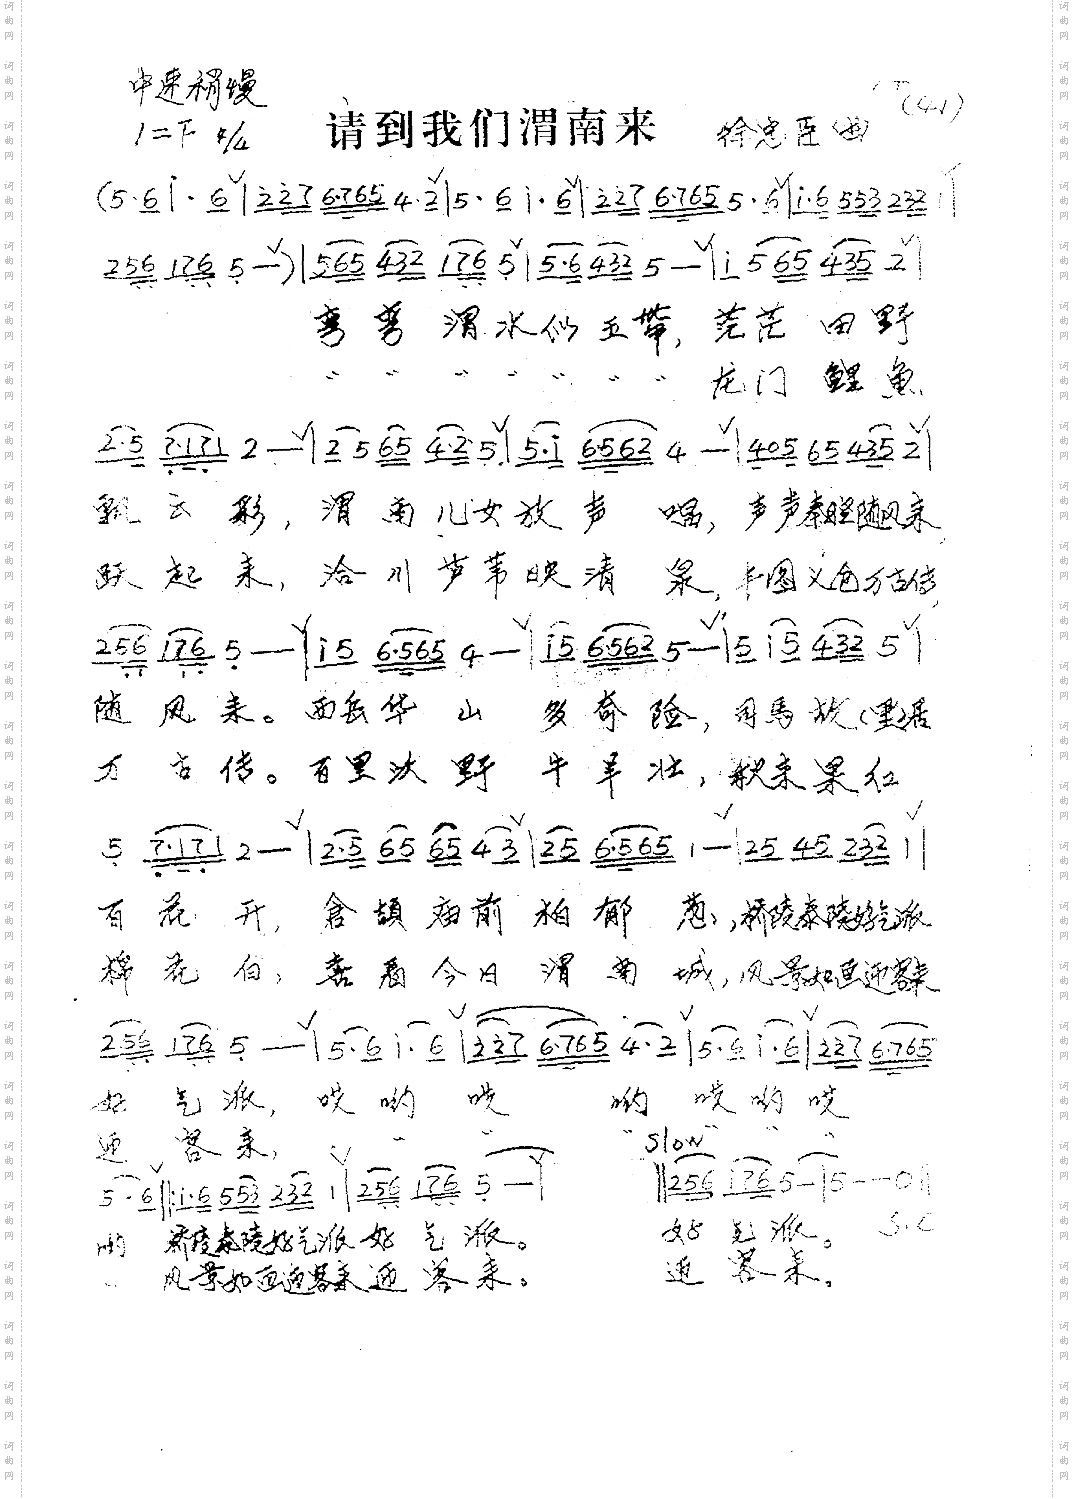 中速稍慢
1=F 4/4
请到我们渭南来
徐忠臣(曲)
(41)
(5·6 i·6 | 2 2 7 6·7 6 5 4·2 | 5·6 i·6 | 2 2 7 6·7 6 5 5·6 | i·6 5 5 3 2 3 2 1 |
2 5 6 1 7 6 5 —) | 5 6 5 4 3 2 1 7 6 5 | 5·6 4 3 2 5 — | i 5 6 5 4 3 5 2 |
弯弯渭水似玉带,茫茫田野
〃 〃 〃 〃 〃 〃 〃 龙门鲤鱼
2·5 7·1 7 1 2 — | 2 5 6 5 4·2 5 | 5·i 6·5 6 2 4 — | 4 0 5 6 5 4 3 5 2 |
飘云彩,渭南儿女放声唱,声声秦腔随风来
跃起来,洽川芦苇映清泉,丰图义仓万古传,
2 5 6 1 7 6 5 — | i 5 6·5 6 5 4 — | i 5 6·5 6 2 5 — | 5 i 5 4 3 2 5 |
随风来。西岳华山多奇险,司马故(里)居
万古传。百里沃野牛羊壮,秋来果红
5 7·1 7 1 2 — | 2·5 6 5 6 5 4 3 | 2 5 6·5 6 5 1 — | 2 5 4 5 2 3 2 1 |
百花开,仓颉庙前柏郁葱,桥陵泰陵好气派
棉花白,喜看今日渭南城,风景如画迎客来
2 5 6 1 7 6 5 — | 5·6 i·6 | 2 2 7 6·7 6 5 4·2 | 5·6 i·6 | 2 2 7 6·7 6 5
好气派,哎哟哎哟哎哟哎
迎客来, 〃 〃 〃 〃 〃 〃
Slow
5·6 ‖: i·6 5 5 3 2 3 2 1 | 2 5 6 1 7 6 5 — | ‖ 2 5 6 1 7 6 5 — | 5 - - 0 ‖
哟 桥陵泰陵好气派好气派。 好气派。
〃 风景如画迎客来迎客来。 迎客来。
词曲网